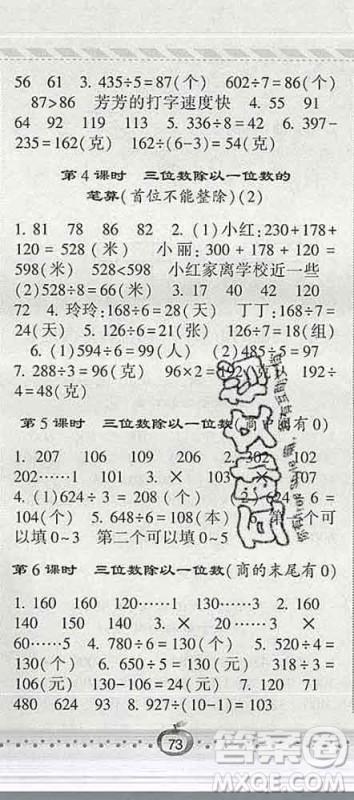 56 61 3. 435÷5=87(个) 602÷7=86(个)
87>86 芳芳的打字速度快 4. 55 91
64 92 119 113 5. 336÷8=42 6. 397-
235=162(克) 162÷(6-3)=54(克)
第4课时 三位数除以一位数的
笔算(首位不能整除)(2)
1. 81 78 86 82 2. (1)小红:230+178+
120=528(米) 小丽:300+178+120=
598(米) 528<598 小红家离学校近一些
(2)528÷8=66(米) 3. 17 40 42 120
72 4. 玲玲:168÷6=28(天) 丁丁:168÷7=
24(天) 5. 126÷6=21(张) 126÷7=18(组)
6. (1)594÷6=99(人) (2)485÷5=97
7. 288÷3=96(克) 96×2= 192÷
4=48(克)
第5课时 三位数除以一位数(商中间有0)
1. 207 106 109 206 2. 302 102
202……1 201……1 3. × ×
4. (1)624÷3=208(个) (2)624÷
6=104(个) 5. 648÷6=108(本) 6. 第一个可
以填0~3 第二个可以填0~5
第6课时 三位数除以一位数(商的末尾有0)
1. 160 160 120……1 130……3 2. 160
140 150 140 3. × × 20
60……5 4. 780÷6=130(个) 5. 520÷4=
130(个) 6. 650÷5=130(元) 318÷3=
106(元) 130-106=24(元) 7. 120 71
480 624 93 8. 927÷(10-1)=103
73
答案圈
MXQE.COM